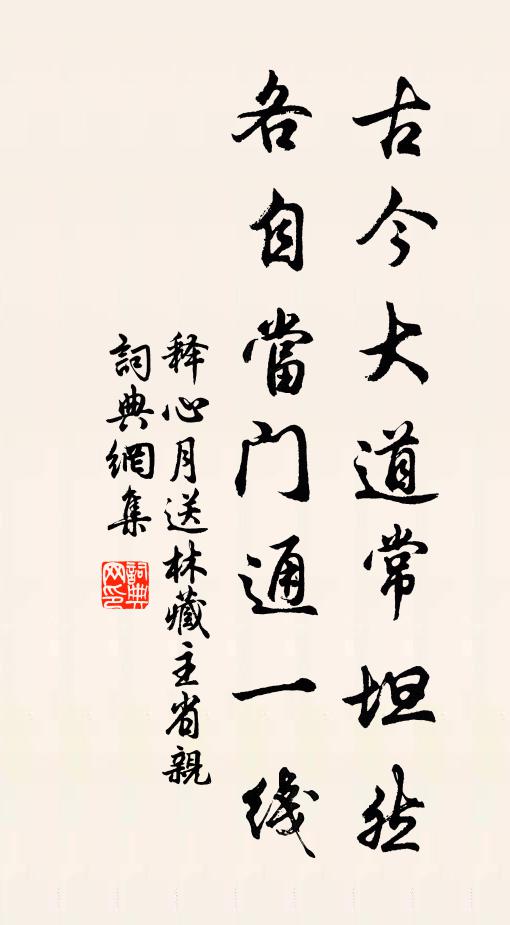 古今大道常坦然
各自當门通一线
释心月送林藏主省親
詞典網集
詞典网印